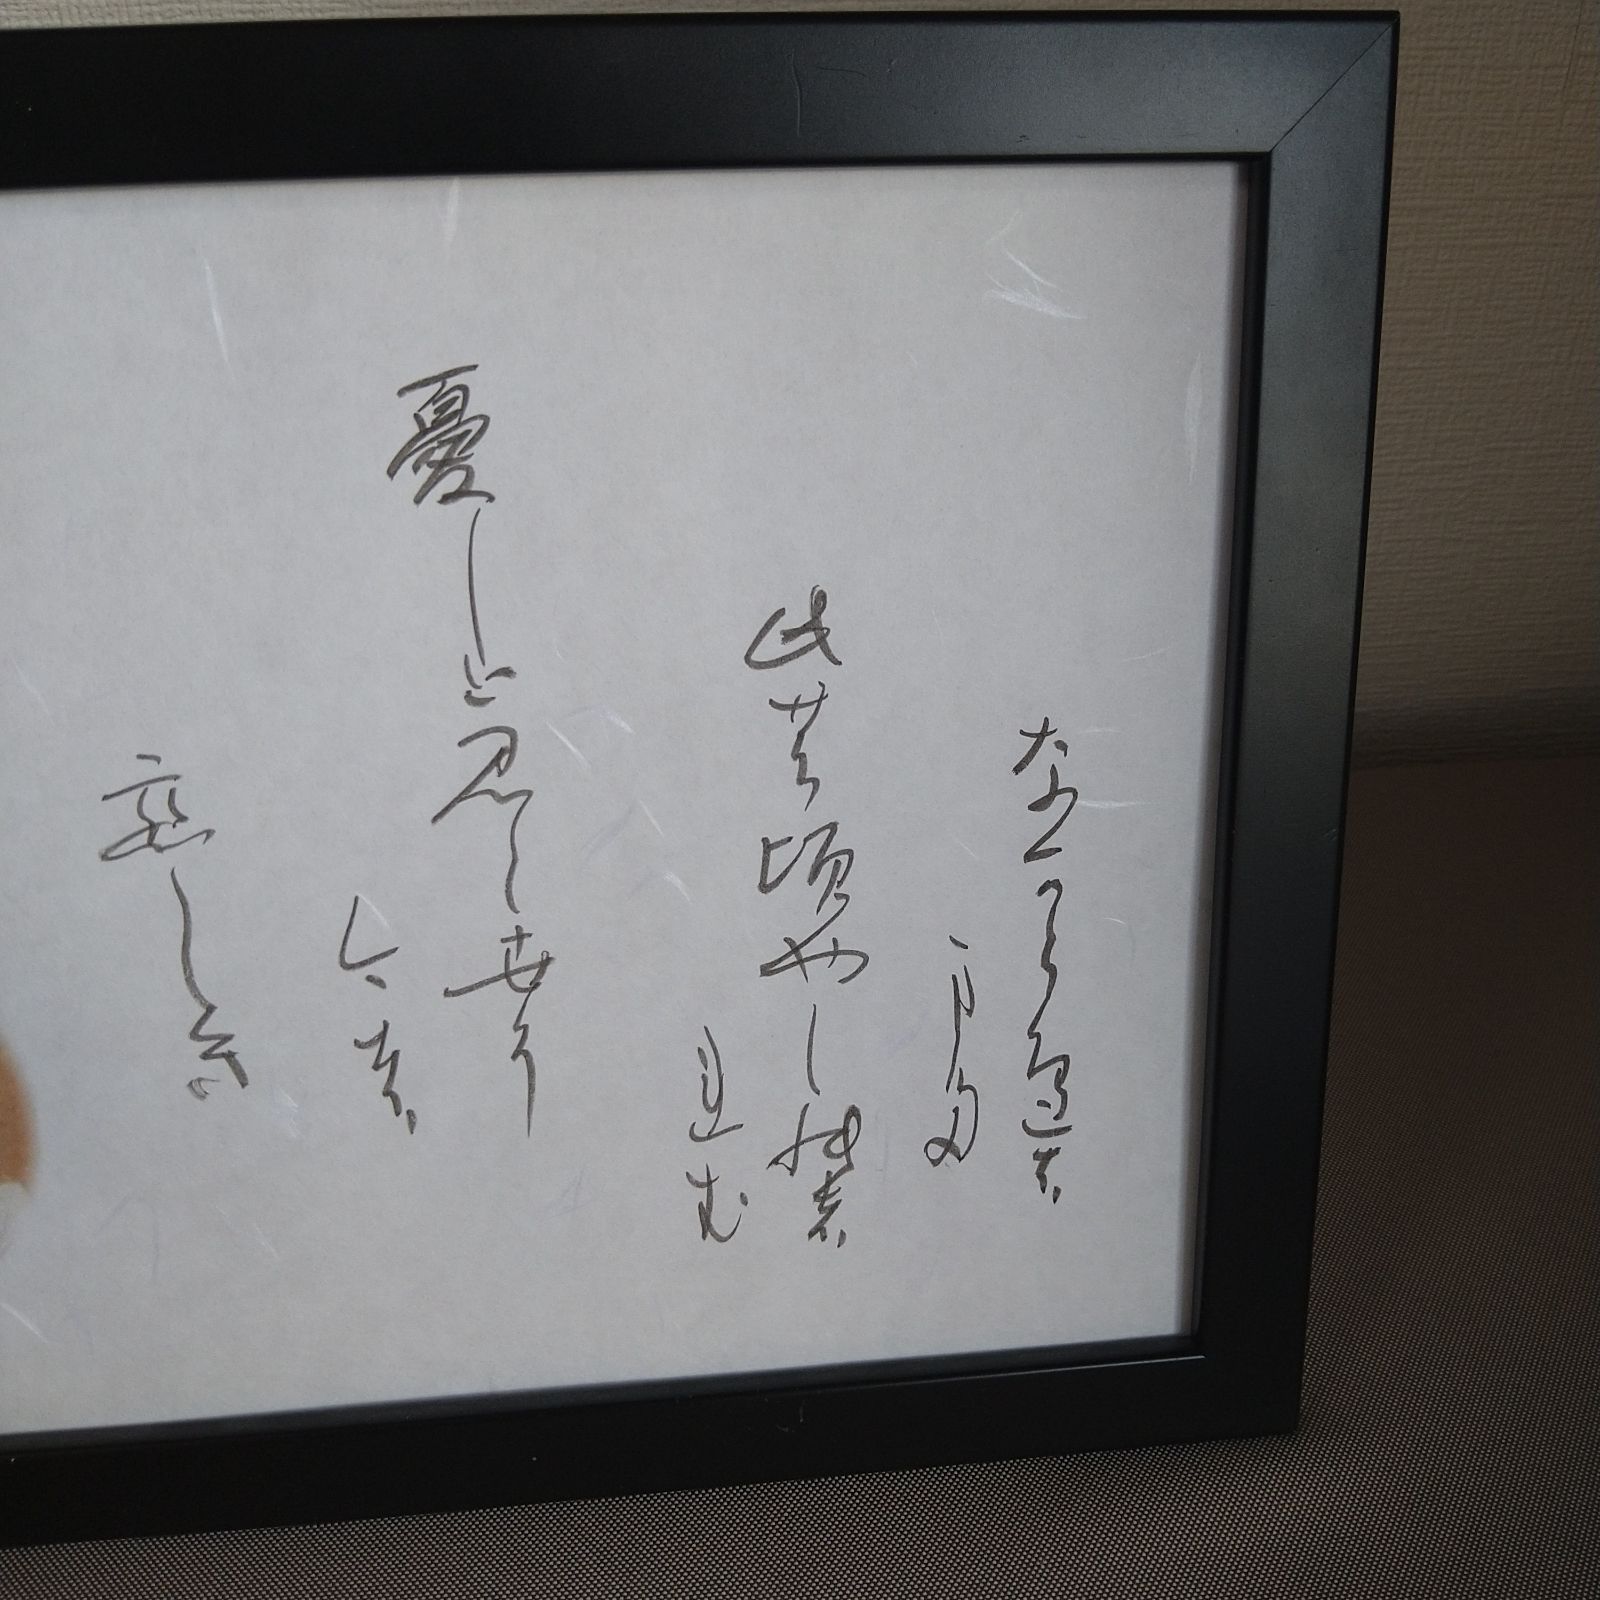 なからへは
また
此の頃やしのは
れむ
憂しと見し世そ
今は
恋しき